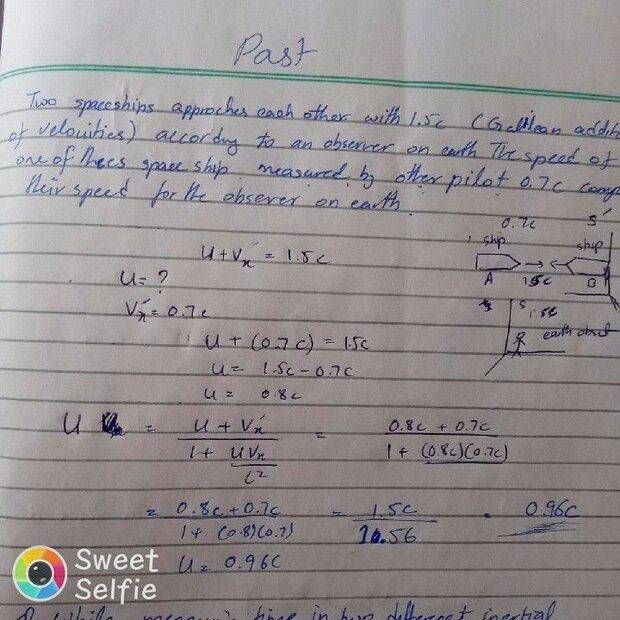 Past
Two spaceships approches each other with 1.5c (Galilean addit
of velouities) according to an observer on earth The speed of
one of thees space ship measured by other pilot 0.7c comp
their speed for the observer on earth.
0.7c S'
ship ship
A 1.5c B
S 1.5c
earth
U + Vx' = 1.5c
U = ?
Vx' = 0.7c
U + (0.7c) = 1.5c
U = 1.5c - 0.7c
U = 0.8c
U = U + Vx' / 1 + UVx / c² = 0.8c + 0.7c / 1 + (0.8c)(0.7c)
= 0.8c + 0.7c / 1 + (0.8)(0.7) = 1.5c / 1.56 = 0.96c
U = 0.96c
Sweet
Selfie
time in two different inertial